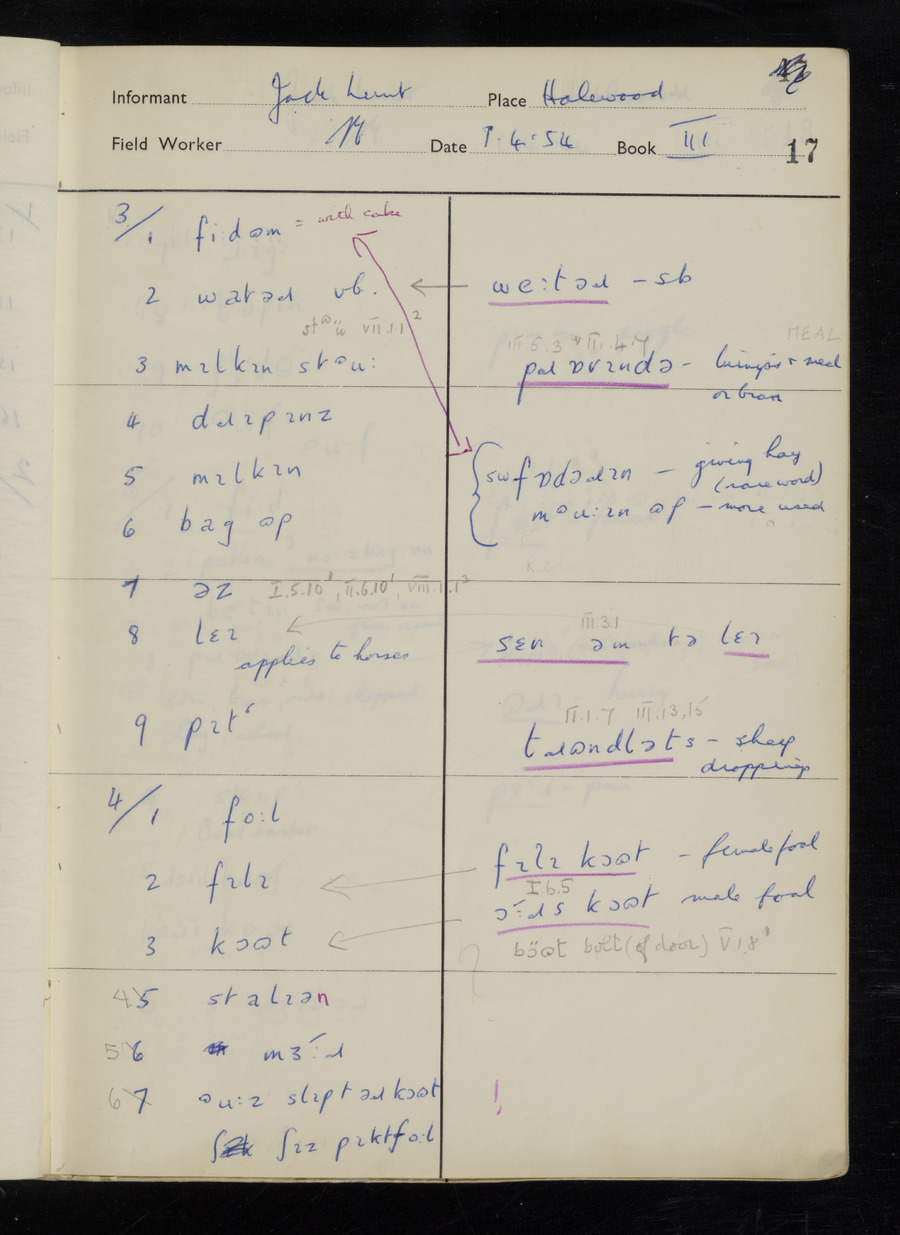 Informant Jack Lunt Place Halewood
Field Worker Date 7.4.54 Book III
17
3/1 fidəm = with cake
2 watəɹ vb. ← we:təɹ - sb
VIII.1.1²
3 mɪlkɪn stəu:
III.5.3 III.4.7 MEAL
pəɹɒvɪndə - & meal
or bran
4 dɹɪpɪnz
5 mɪlkɪn
fɒdəɹɪn - giving hay
(rare word)
6 bag əp
məu:ɪn əp - more used
7 əz I.5.10¹, II.6.10¹, VIII.1.1²
8 lɛɪ
applies to horses
III.3.1
sɛn əm tə lɛɪ
9 pɪt
II.1.7 III.13,15
tɹəndləts - sheep
droppings
4/1 fo:l
2 fɪlɪ ← fɪlɪ kɔət - female foal
I.6.5
ɔ:ɹs kɔət male foal
3 kɔət
bɔ̈ət bolt (of door) V.1.8¹
4 5 stalɪən
5 6 mɜ:ɹ
6 7 əu:z slɪpt əɹ kɔət
ʃɪz pɪkt fo:l